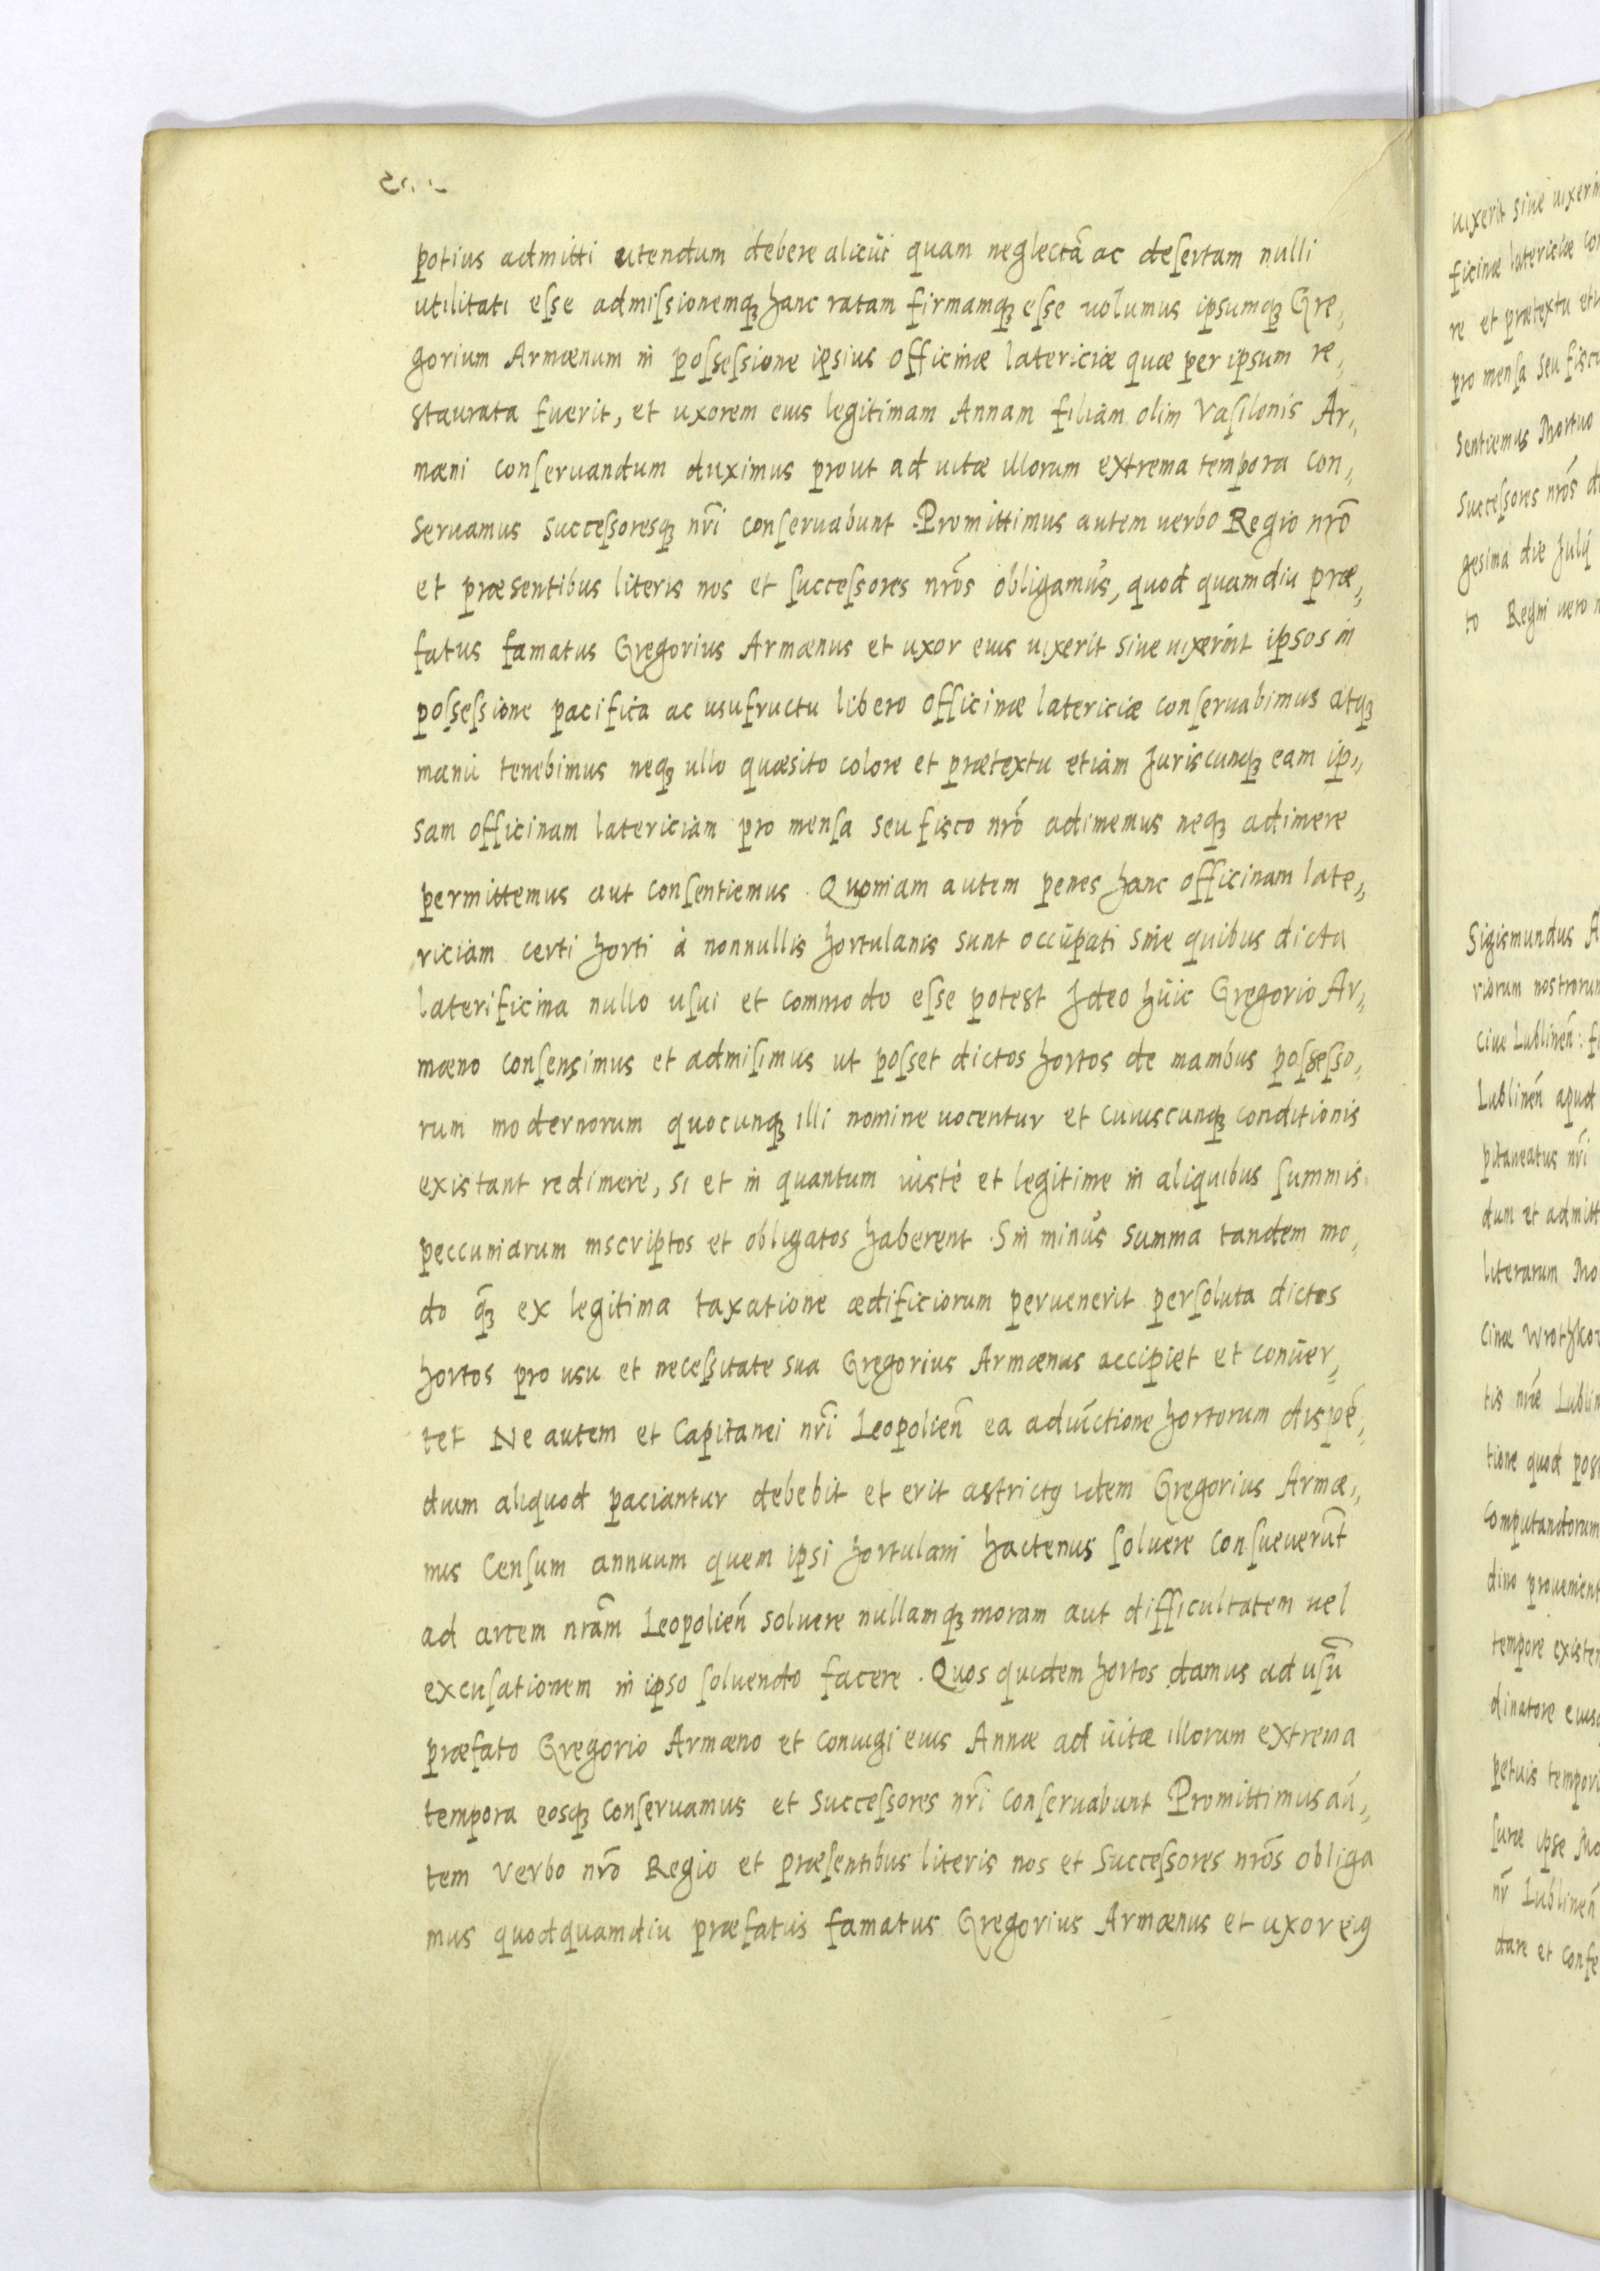 potius admitti utendum debere alicui quam neglectā ac desertam nulli
utilitati esse admissionemq₃ hanc ratam firmamq₃ esse uolumus ipsumq₃ Gre,,
gorium Armænum in possessione ipsius officinæ latericiæ quæ per ipsum re,,
staurata fuerit, et uxorem eius legitimam Annam filiam olim Vasilonis Ar,,
mæni conseruandum duximus prout ad uitæ illorum extrema tempora con,,
seruamus successoresq₃ nr̄i conseruabunt. Promittimus autem uerbo Regio nr̄o
et præsentibus literis nos et successores nr̄os obligamus, quod quamdiu præ,,
fatus famatus Gregorius Armænus et uxor eius uixerit siue uixerint ipsos in
possessione pacifica ac usufructu libero officinæ latericiæ conseruabimus atq₃
manu tenebimus neq₃ ullo quæsito colore et prætextu etiam Juriscunq₃ eam ip,,
sam officinam latericiam pro mensa seu fisco nr̄o adimemus neq₃ adimere
permittemus aut consentiemus. Quoniam autem penes hanc officinam late,,
riciam certi horti à nonnullis hortulanis sunt occupati sine quibus dicta
laterificina nullo usui et commodo esse potest Ideo huic Gregorio Ar,,
mæno consensimus et admisimus ut posset dictos hortos de manibus possesso,,
rum modernorum quocunq₃ illi nomine uocentur et cuiuscunq₃ conditionis
existant redimere, si et in quantum iustè et legitime in aliquibus summis
peccuniarum inscriptos et obligatos haberent. Sin minus summa tandem mo,,
do q̄₃ ex legitima taxatione ædificiorum peruenerit persoluta dictos
hortos pro usu et necessitate sua Gregorius Armænus accipiet et conuer,,
tet Ne autem et Capitanei nr̄i Leopolien̄ ea aduictione hortorum dispē,,
dium aliquod paciantur debebit et erit astrictꝯ idem Gregorius Armæ,,
nus Censum annuum quem ipsi hortulani hactenus soluere consueuerūt
ad arcem nrām Leopolien̄ soluere nullamq₃ moram aut difficultatem uel
excusationem in ipso soluendo facere. Quos quidem hortos damus ad usū
præfato Gregorio Armæno et coniugi eius Annæ ad uitæ illorum extrema
tempora eosq₃ conseruamus et successores nr̄i conseruabunt Promittimus au,,
tem verbo nr̄o Regio et præsentibus literis nos et Successores nr̄os obliga
mus quod quamdiu præfatus famatus Gregorius Armænus et uxor eiꝯ
uixerit siue uixerin
ficinæ latericiæ con
re et prætextu eti
pro mensa seu fisc
sentiemus Mortuo
successores nr̄os d
gesima die Julij
to Regni uero n
Sigismundus A
riorum nostrorum
ciue Lublinen̄: f
Lublinen̄ apud
pitaneatus nr̄i
dum et admitt
literarum
cinæ Wrothkow
tis nr̄æ Lublin
tione quod pos
computandorum
dino prouenient
tempore existen
dinatore eius
petuis tempori
suræ ipse
nr̄ Lublinen̄
dare et confe